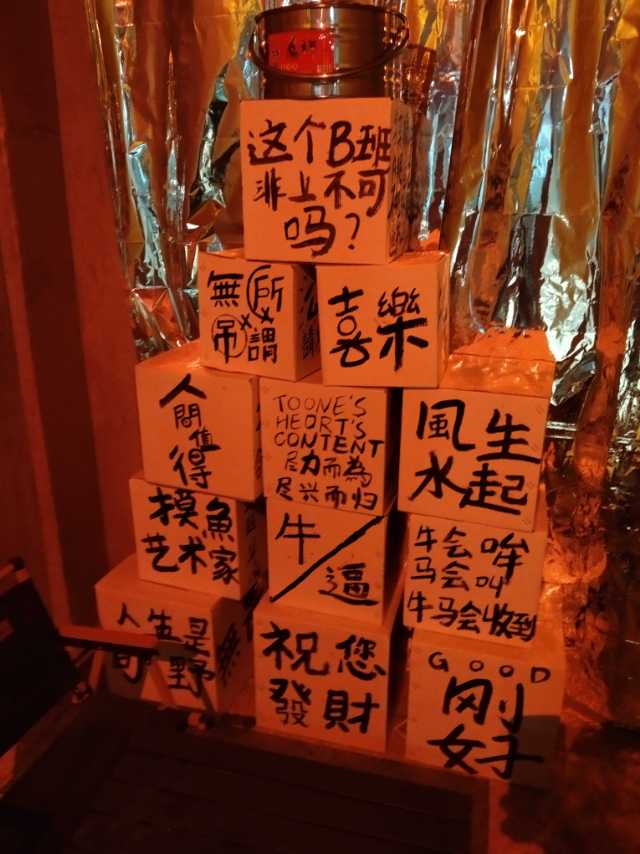 这个B班
非上不可
吗?
無所
吊××謂
喜樂
人
間值
得
TO ONE'S
HEORT'S
CONTENT
尽力而為
尽兴而归
風生
水起
摸魚
艺术家
牛/逼
牛会哞
马会叫
牛马会收到
人生是
野
祝您
發財
GOOD
刚
好